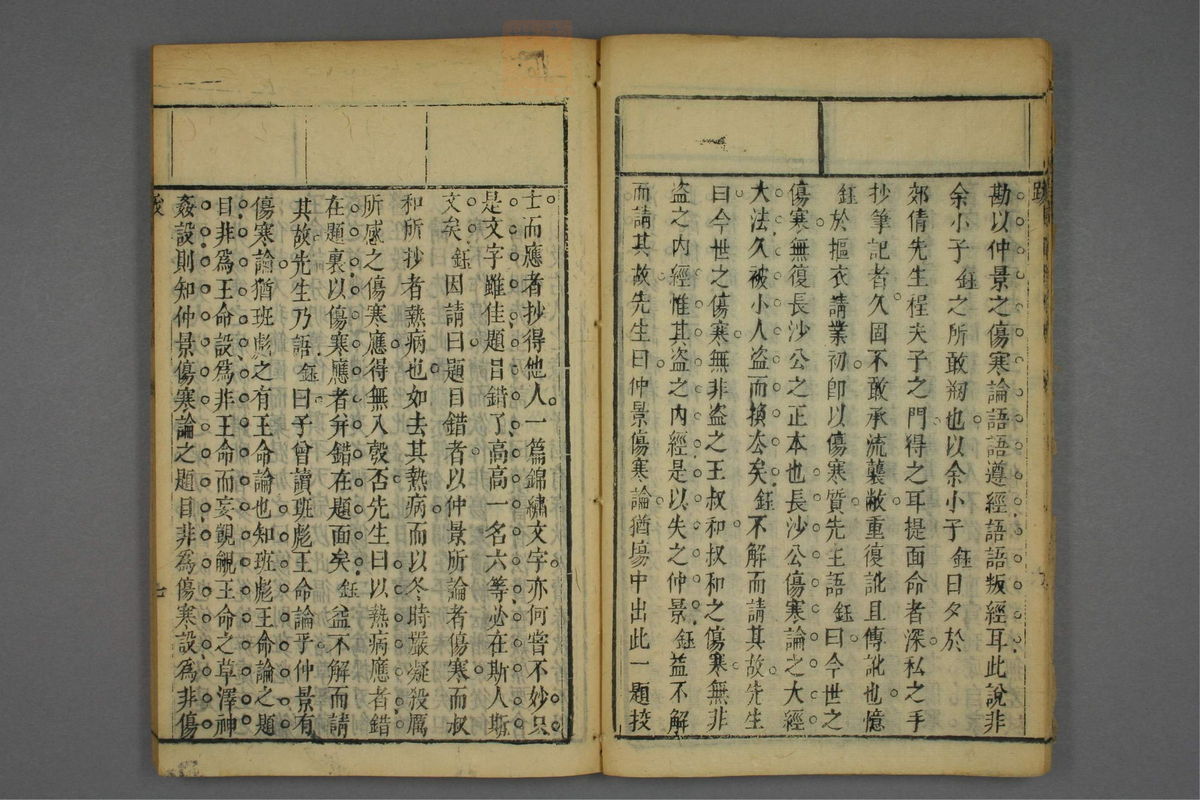 跋
勘以仲景之傷寒論語語遵經語語叛經耳此說非
余小子鈺之所敢搊也以余小子鈺日夕於
郊倩先生桯夫子之門得之耳提面命者深私之手
抄筆記者久固不敢承流襲敝重復訛且傳訛也憶
鈺於摳衣請業初卽以傷寒質先生語鈺曰今世之
傷寒無復長沙公之正本也長沙公傷寒論之大經
大法久被小人盗而換厺矣鈺不解而請其故先生
曰今世之傷寒無非盗之王叔和叔和之傷寒無非
盗之内經惟其盗之内經是以失之仲景鈺益不解
而請其故先生曰仲景傷寒論猶塲中出此一題技
士而應者抄得他人一篇錦繡文字亦何嘗不妙只
是文字雖佳題目錯了高高一名六等必在斯人斯
文矣鈺因請曰題目錯者以仲景所論者傷寒而叔
和所抄者熱病也如去其熱病而以冬時嚴凝殺厲
所感之傷寒應得無入彀否先生曰以熱病應者錯
在題裏以傷寒應者并錯在題面矣鈺益不解而請
其故先生乃語鈺曰子曾讀班彪王命論乎仲景有
傷寒論猶班彪之有王命論也知班彪王命論之題
目非爲王命設爲非王命而妄覬覦王命之草澤神
姦設則知仲景傷寒論之題目非爲傷寒設爲非傷
七